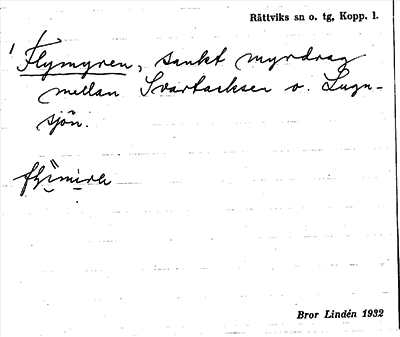 Rättviks sn o. tg, Kopp. l.
1 Flymyren, sankt myrdrag
mellan Svartacksen o. Lugn-
sjön.
Bror Lindén 1932